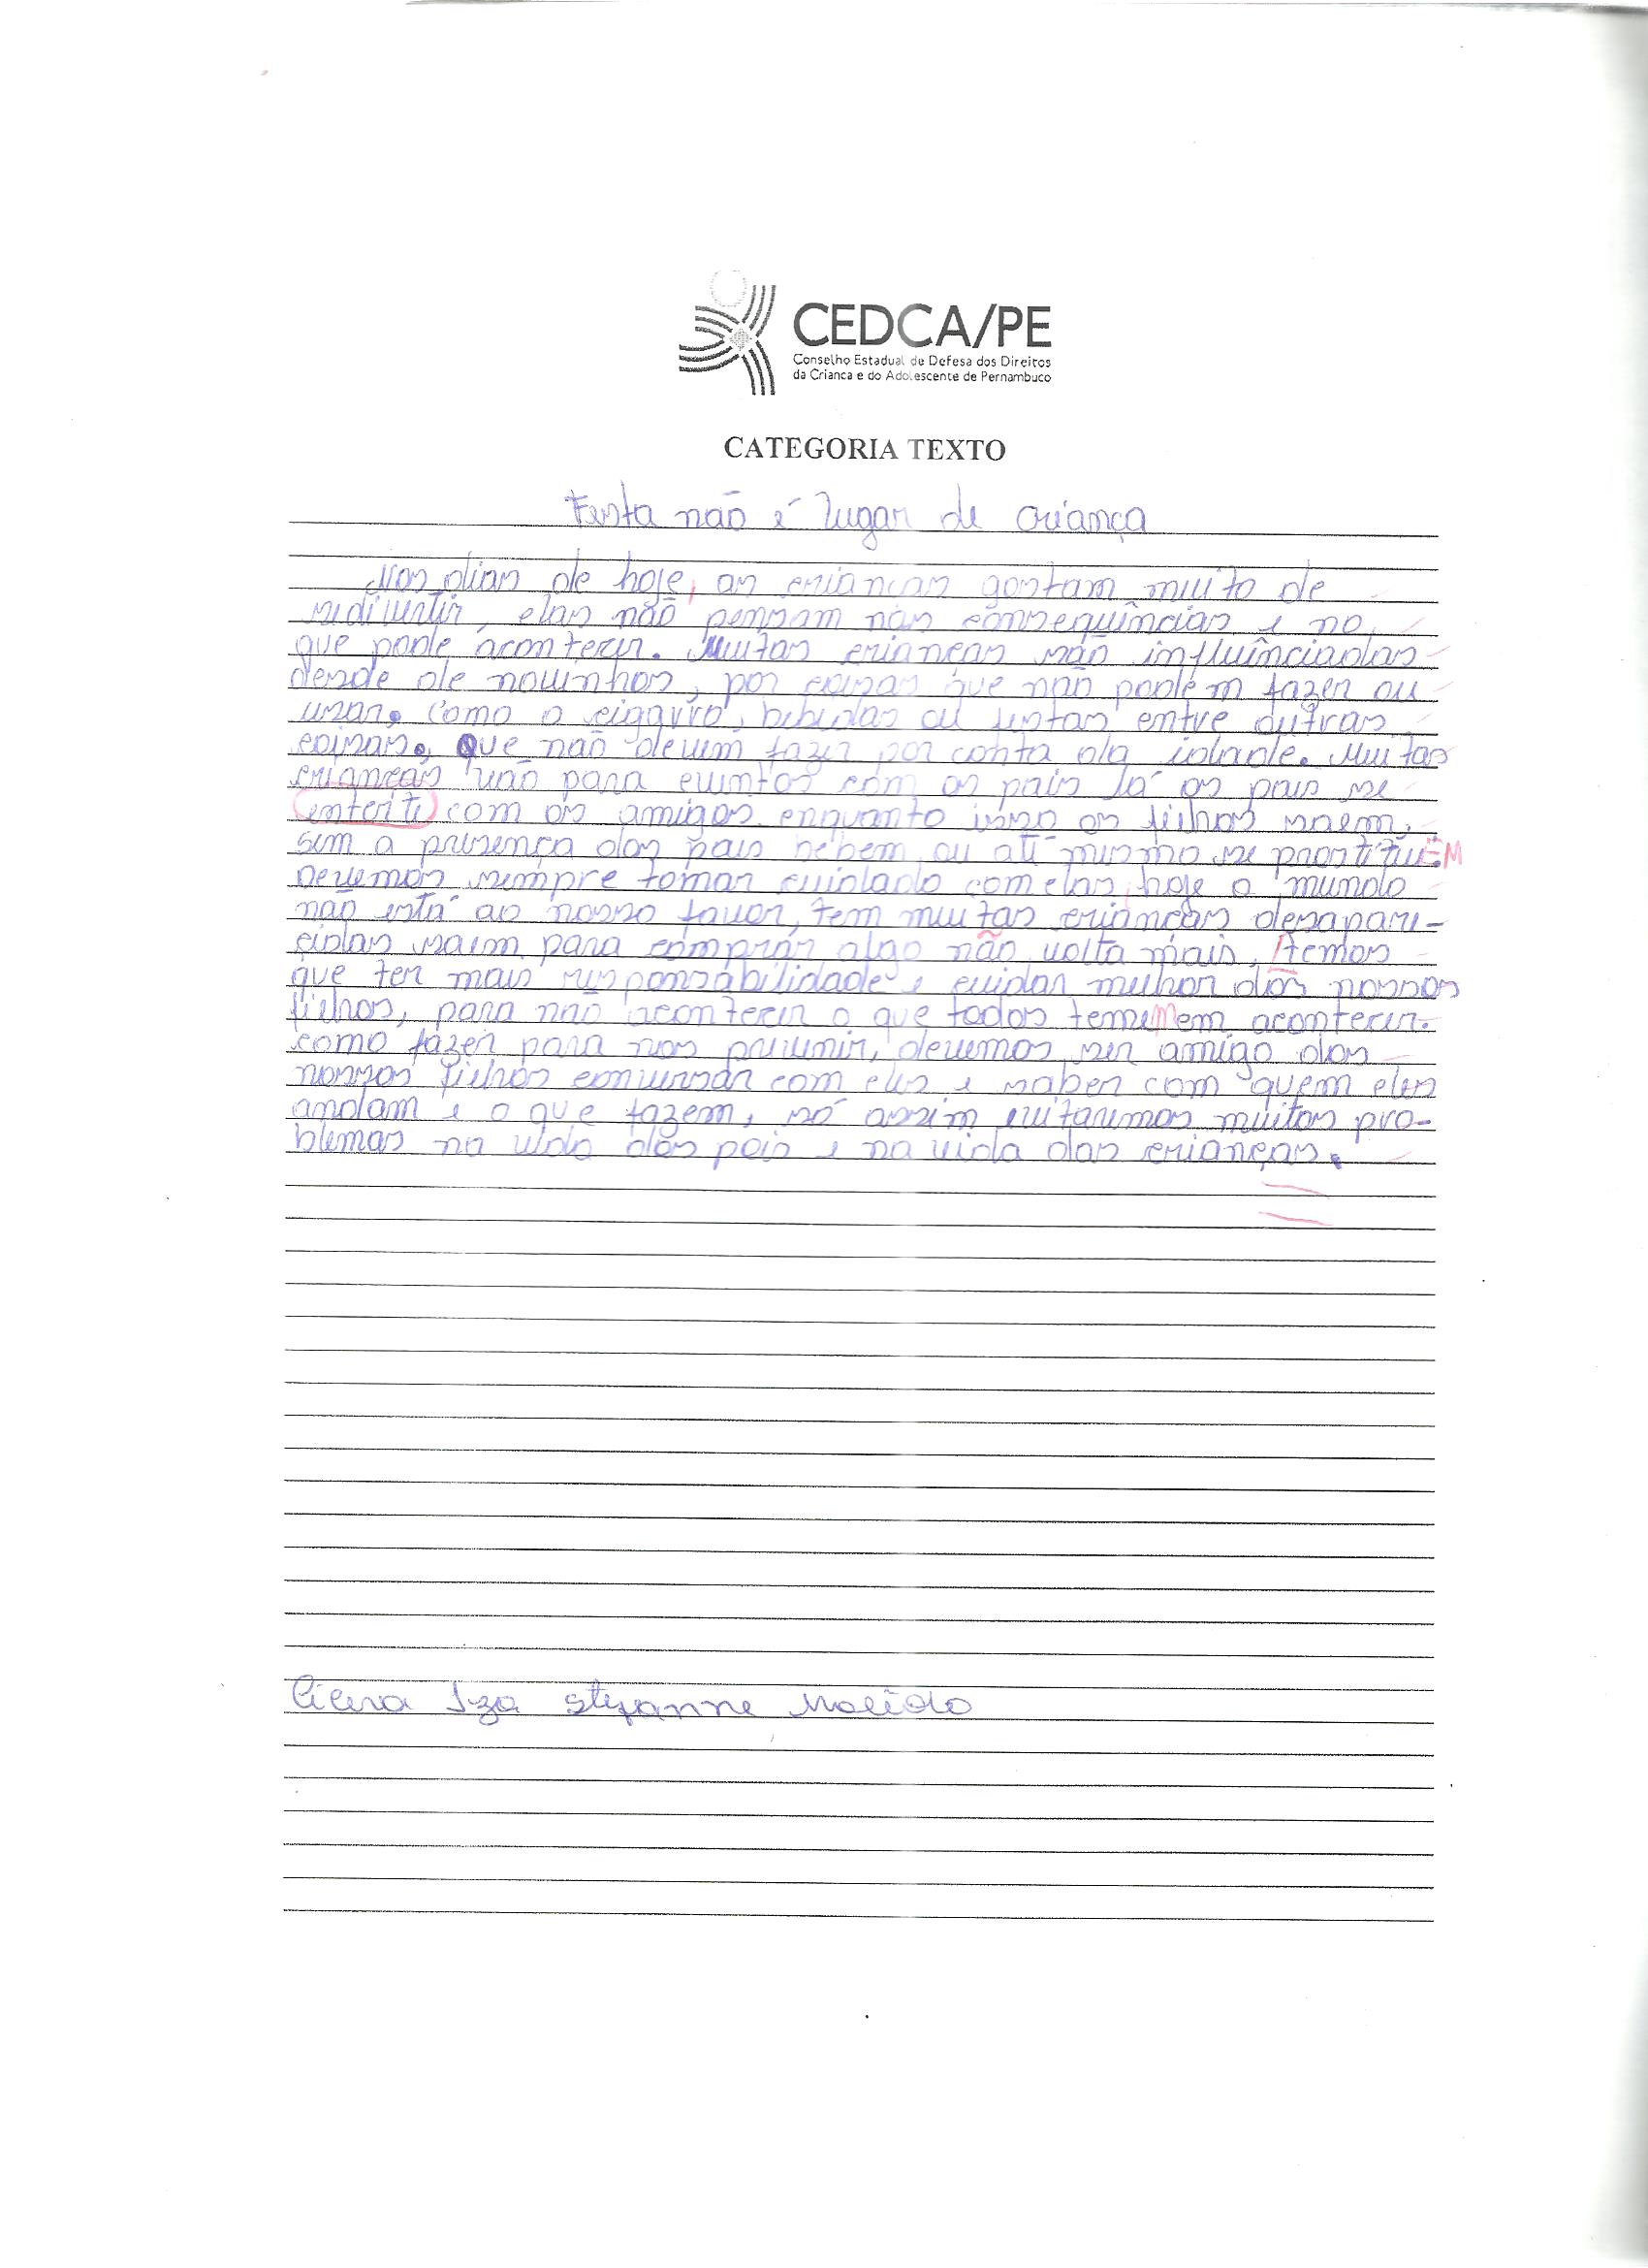 CEDCA/PE
Conselho Estadual de Defesa dos Direitos
da Crianca e do Adolescente de Pernambuco
CATEGORIA TEXTO
Festa não é lugar de criança
Nos dias de hoje, as criancas gostam muito de
sedivertir, elas não pensam nas consequências e no
que pode acontecer. Muitas crianças são influênciadas
desde de novinhas, por coisas que não podem fazer ou
usar. Como o cigarro, bebidas ou festas entre outras
coisas. Que não devem fazer por conta da idade. Muitas
crianças vão para eventos com os pais lá os pais se
enterti com os amigos enquanto isso os filhos saem,
sem a presença dos pais bebem ou até mesmo se prostituEM
Devemos sempre tomar cuidado com elas, hoje o mundo
não está ao nosso favor, tem muitas crianças desapari-
cidas saem para comprar algo não volta mais, temos
que ter mais responsabilidade e cuidar melhor dos nossos
filhos, para não acontecer o que todos tememem acontecer.
como fazer para nos previnir, devemos ser amigo dos
nossos filhos conversar com eles e saber com quem eles
andam e o que fazem, só assim evitaremos muitos pro-
blemas na vida dos pais e na vida das crianças.
Cicera Iza Stefanne Macêdo